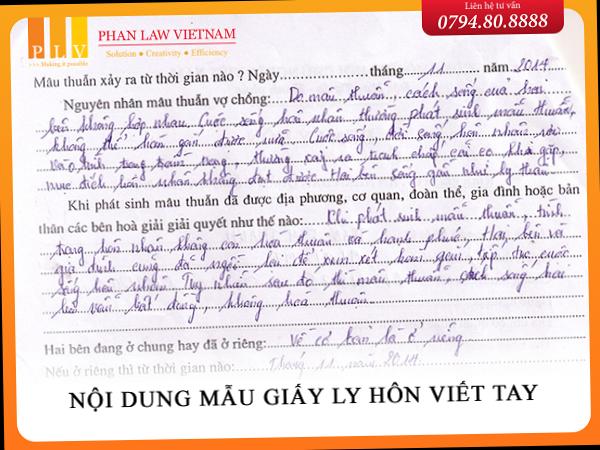 Liên hệ tư vấn
0794.80.8888
PLV
>>> Making it possible
PHAN LAW VIETNAM
Solution ● Creativity ● Efficiency
Mâu thuẫn xảy ra từ thời gian nào ? Ngày.................tháng.....11.......năm..2014
Nguyên nhân mâu thuẫn vợ chồng: Do mâu thuẫn, cách sống của hai
bên không hợp nhau. Cuộc sống hôn nhân thường phát sinh mâu thuẫn,
không thể hàn gắn được nữa. Cuộc sống, đời sống hôn nhân rơi
vào tình trạng trầm trọng, thường xảy ra tranh chấp cãi cọ
mục đích hôn nhân không đạt được. Hai bên sống gần như ly thân
Khi phát sinh mâu thuẫn đã được địa phương, cơ quan, đoàn thể, gia đình hoặc bản
thân các bên hoà giải giải quyết như thế nào: Khi phát sinh mâu thuẫn, tình
trạng hôn nhân không còn hoà thuận và hạnh phúc, Hai bên và
gia đình cũng đã ngồi lại để xem xét hàn gắn, tiếp tục cuộc
sống hôn nhân. Tuy nhiên sau đó thì mâu thuẫn, cách sống hai
bên vẫn bất đồng, không hoà thuận
Hai bên đang ở chung hay đã ở riêng: Về cơ bản là ở riêng
Nếu ở riêng thì từ thời gian nào: Tháng 11 năm 2014
NỘI DUNG MẪU GIẤY LY HÔN VIẾT TAY